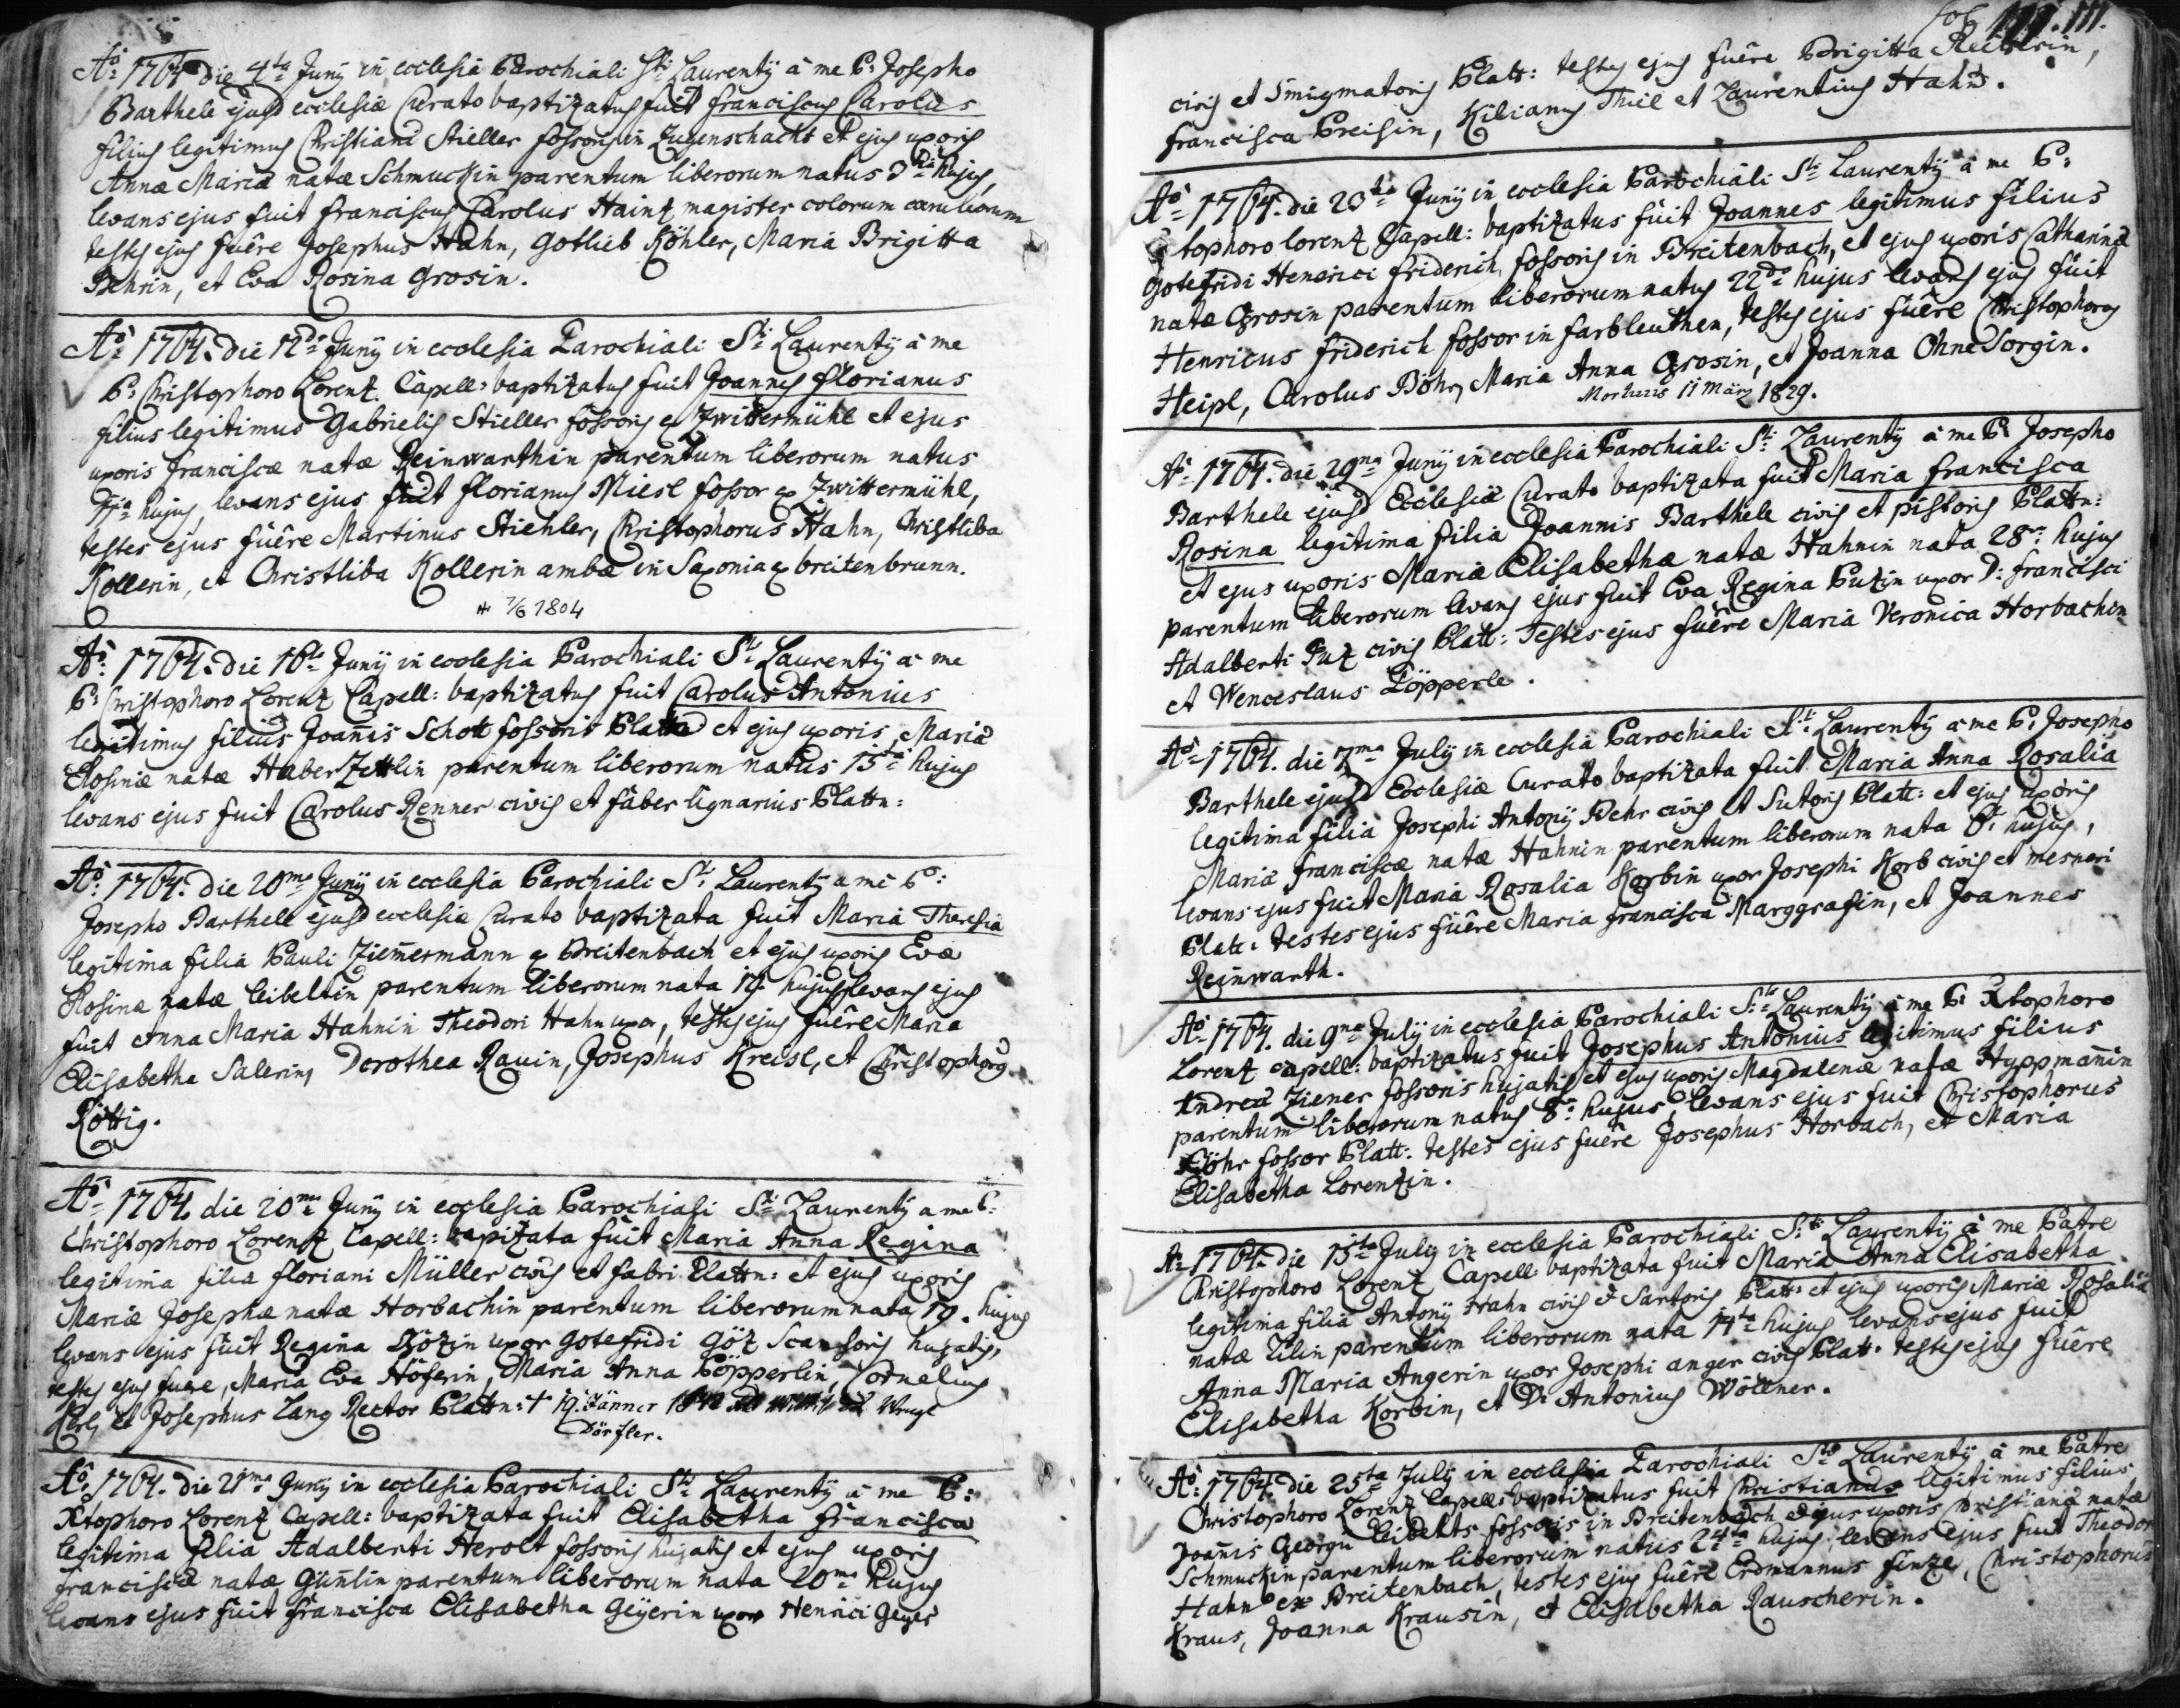 Aō 1764 die 4ta Junÿ in ecclesia Parochiali Sti Laurentÿ à me P: Josepho
Barthele ejusd ecclesiæ Curato baptizatus fuit Franciscus Carolus
filius legitimus Christiani Stieller fossoris in Zugenschacht et ejus uxoris
Annæ Mariæ natæ Schmuckin parentum liberorum natus 3tia hujus,
levans ejus fuit Franciscus Carolus Hainz magister colorum cæruleorum
testes ejus fuêre Josephus Hahn, Gotlieb Köhler, Maria Brigitta
Behrin, et Eva Rosina Grosin.
Aō 1764. die 12da Junÿ in ecclesia Parochiali Sti Laurentÿ à me
P: Christophoro Lorenz Capell: baptizatus fuit Joannes Florianus
filius legitimus Gabrielis Stieller fossoris ex Zwittermühl et ejus
uxoris Franciscæ natæ Reinwarthin parentum liberorum natus
11ma hujus, levans ejus fuit Florianus Miesl fossor ex Zwittermühl,
testes ejus fuêre Martinus Stiehler, Christophorus Hahn, Christliba
Kollerin, et Christliba Kollerin ambæ in Saxonia ex breitenbrunn.
7/6 1804
Aō 1764. die 16ta Junÿ in ecclesia Parochiali Sti Laurentÿ à me
P: Christophoro Lorenz Capell: baptizatus fuit Carolus Antonius
legitimus filius Joañis Schott fossoris Platta et ejus uxoris Mariæ
Rosinæ natæ Haberzettlin parentum liberorum natus 15ta hujus
levans ejus fuit Carolus Renner civis et faber lignarius Plattn:
Aō 1764. die 20ma Junÿ in ecclesia Parochiali Sti Laurentÿ a me P:
Josepho Barthele ejusd ecclesiæ Curato baptizata fuit Maria Theresia
legitima filia Pauli Zim̄ermann ex Breitenbach et ejus uxoris Evæ
Rosinæ natæ Leibeltin parentum liberorum nata 19. hujus levans ejus
fuit Anna Maria Hahnin Theodori Hahn uxor, testes ejus fuêre Maria
Elisabetha Salerin, Dorothea Rauin, Josephus Kreisl, et Christophorus
Röttig.
Aō 1764. die 20ma Junÿ in ecclesia Parochiali Sti Laurentÿ a me P:
Christophoro Lorenz Capell: bapizata fuit Maria Anna Regina
legitima filia Floriani Müller civis et fabri Plattn: et ejus uxoris
Mariæ Josephæ natæ Horbachin parentum liberorum nata 19. hujus
levans ejus fuit Regina Gözin uxor Gotefridi Göz Scansoris hujatis,
testes ejus fuere, Maria Eva Höferin, Maria Anna Pöpperlin, Cornelius
et Josephus Lang Rector Plattn: † 19. Jänner
Dörfler.
Aō 1764. die 21ma Junÿ in ecclesia Parochiali Sti Laurentÿ à me P:
Xtophoro Lorenz Capell: baptizata fuit Elisabetha Francisca
legitima filia Adalberti Herolt fossoris hujatis et ejus uxoris
Franciscæ natæ Günlin parentum liberorum nata 20ma hujus
levans ejus fuit Francisca Elisabetha Geÿerin uxor Henrici Geyer
fol 111.
civis et Smigmatoris Platt: testes ejus fuêre Brigitta
Francisca Preisin, Kilianus Thiel et Laurentius Hahn.
Aō 1764. die 23tia Junÿ in ecclesia Parochiali Sti Laurentÿ à me P:
Xtophoro Lorenz Capell: baptizatus fuit Joannes legitimus filius
Gotefridi Henrici Friderich, fossoris in Breitenbach, et ejus uxoris Catharinæ
natæ Grosin parentum liberorum natus 22da hujus levans ejus fuit
Henricus Friderich fossor in Farbleuthen, testes ejus fuêre Christophorus
Heipl, Carolus Böhr, Maria Anna Grosin, et Joanna OhneSorgin.
Mortuus 11 März 1829.
Aō 1764. die 29na Junÿ in ecclesia Parochiali Sti Laurentÿ à me P: Josepho
Barthele ejusd Ecclesiæ Curato baptizata fuit Maria Francisca
Rosina legitima filia Joannis Barthele civis et pistoris Plattn:
et ejus uxoris Mariæ Elisabethæ natæ Hahnin nata 28va hujus
parentum liberorum levans ejus fuit Eva Regina Puzin uxor D: Francisci
Adalberti Puz civis Platt: Testes ejus fuêre Maria Veronica Horbachin
et Wenceslaus Töpperle.
Aō 1764. die 7ma Julÿ in ecclesia Parochiali Sti Laurentÿ à me P: Josepho
Barthele ejusd Ecclesiæ Curato baptizata fuit Maria Anna Rosalia
legitima filia Josephi Antonÿ Behr civis et Sutoris Platt: et ejus uxoris
Mariæ Franciscæ natæ Hahnin parentum liberorum nata 6ta hujus,
levans ejus fuit Maria Rosalia Korbin uxor Josephi Korb civis et mesnari
Platt: testes ejus fuêre Maria Francisca Marggrafin, et Joannes
Reinwarth.
Aō 1764. die 9na Julÿ in ecclesia Parochiali Sti Laurentÿ à me P: Xtophoro
Lorenz capell: baptizatus fuit Josephus Antonius legitimus filius
Andreæ Ziener fossoris hujatis et ejus uxoris Magdalenæ natæ Hyppmañin
parentum liberorum natus 8va hujus, levans ejus fuit Christophorus
Böhr fossor Platt: testes ejus fuêre Josephus Horbach, et Maria
Elisabetha Lorenzin.
Aō 1764. die 15ta Julÿ in ecclesia Parochiali Sti Laurentÿ à me Patre
Christophoro Lorenz Capell: baptizata fuit Maria Anna Elisabetha
legitima filia Antonÿ Hahn civis & Sartoris Platt: et ejus uxoris Mariæ Rosaliæ
natæ Lilin parentum liberorum nata 14ta hujus levans ejus fuit
Anna Maria Angerin uxor Josephi anger civis Platt. testes ejus fuêre
Elisabetha Korbin, et D: Antonius Wöllner.
Aō 1764. die 25ta Julÿ in ecclesia Parochiali Sti Laurentÿ à me Patre
Christophoro Lorenz Capell: baptizatus fuit Christianus legitimus filius
Joañis Georgii Leibelts fossoris in Breitenbach & ejus uxoris Christianæ natæ
Schmuckin parentum liberorum natus 24ta hujus, levans ejus fuit Theodor
Hahn ex Breitenbach, testes ejus fuêre Erdmannus Finze, Christophorus
Kraus, Joanna Krausin, et Elisabetha Rauscherin.